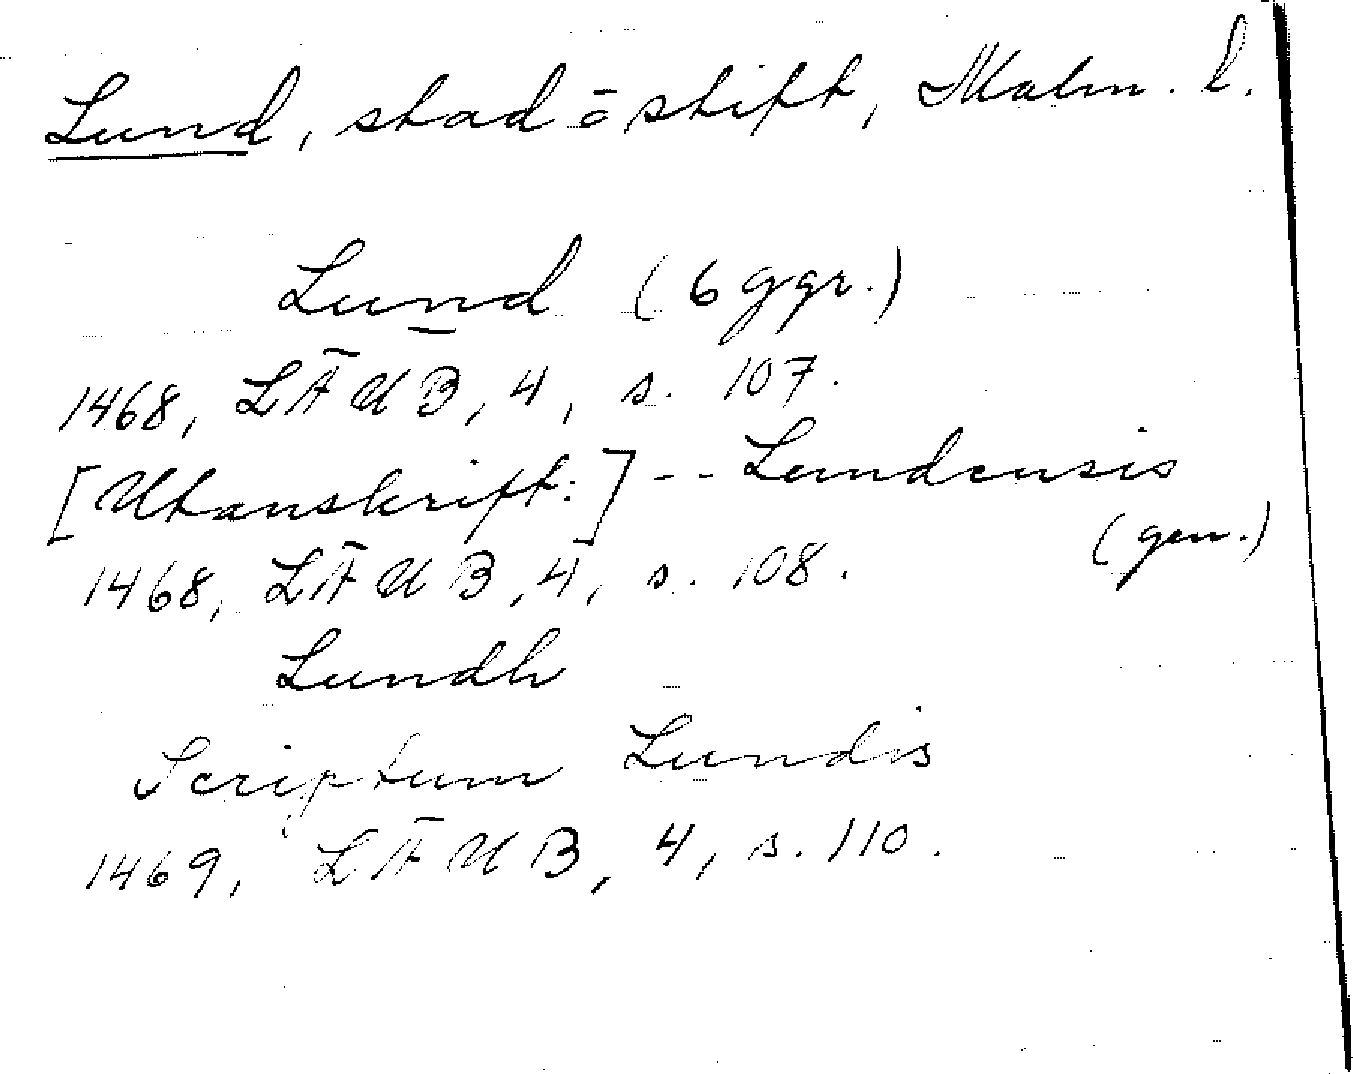 Lund, stad o̅ stift, Malm. l.
Lund (6 ggr.)
1468, LÄUB, 4, s. 107.
[Utanskrift:] -- Lundensis
(gen.)
1468, LÄUB, 4, s. 108.
Lundh
Scriptum Lundis
1469, LÄUB, 4, s. 110.